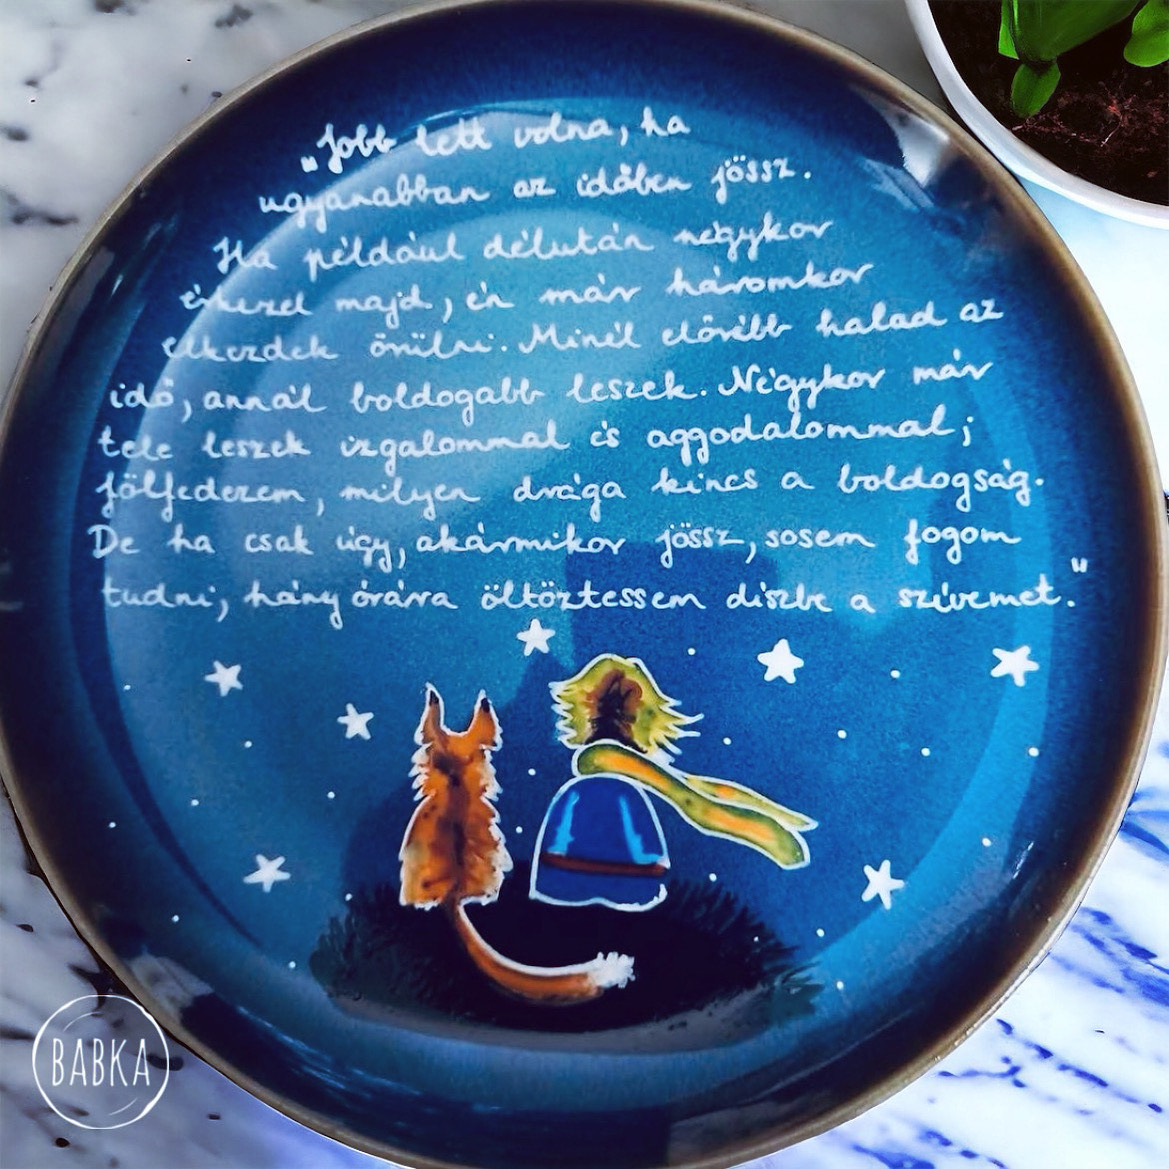 „Jobb lett volna, ha
ugyanabban az időben jössz.
Ha például délután négykor
érkezel majd, én már háromkor
elkezdek örülni. Minél előrébb halad az
idő, annál boldogabb leszek. Négykor már
tele leszek izgalommal és aggodalommal;
fölfedezem, milyen drága kincs a boldogság.
De ha csak úgy, akármikor jössz, sosem fogom
tudni, hány órára öltöztessem díszbe a szívemet."
BABKA